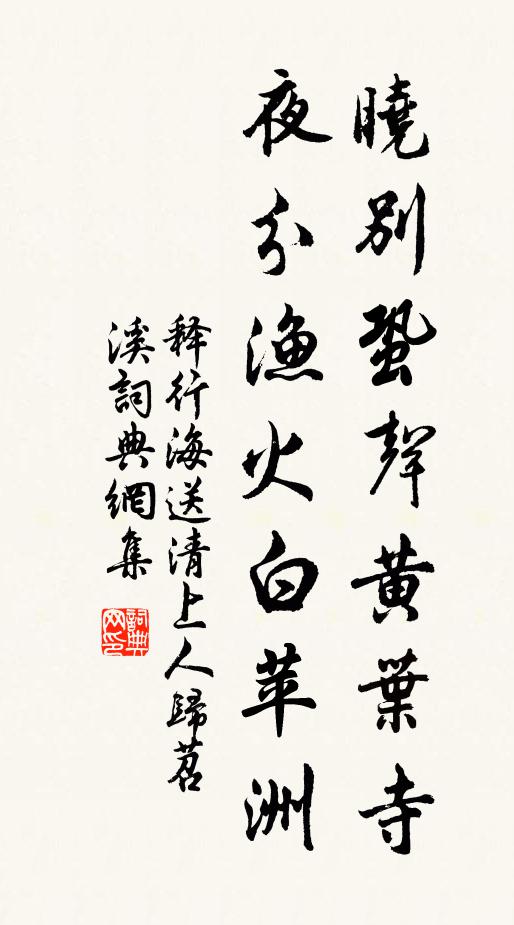 曉別蛩聲黃葉寺
夜分漁火白苹洲
释行海送清上人歸苕
溪詞典網集
詞典
网印